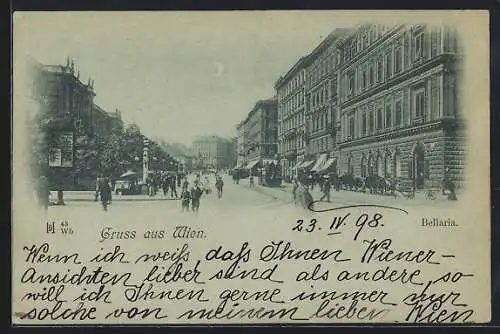 23. IV. 98.
Bellaria.
45
Wb
Gruss aus Wien.
Wenn ich weiß, daß Ihnen Wiener-
Ansichten lieber sind als andere, so
will ich Ihnen gerne immer nur
solche von meinem lieben Wien